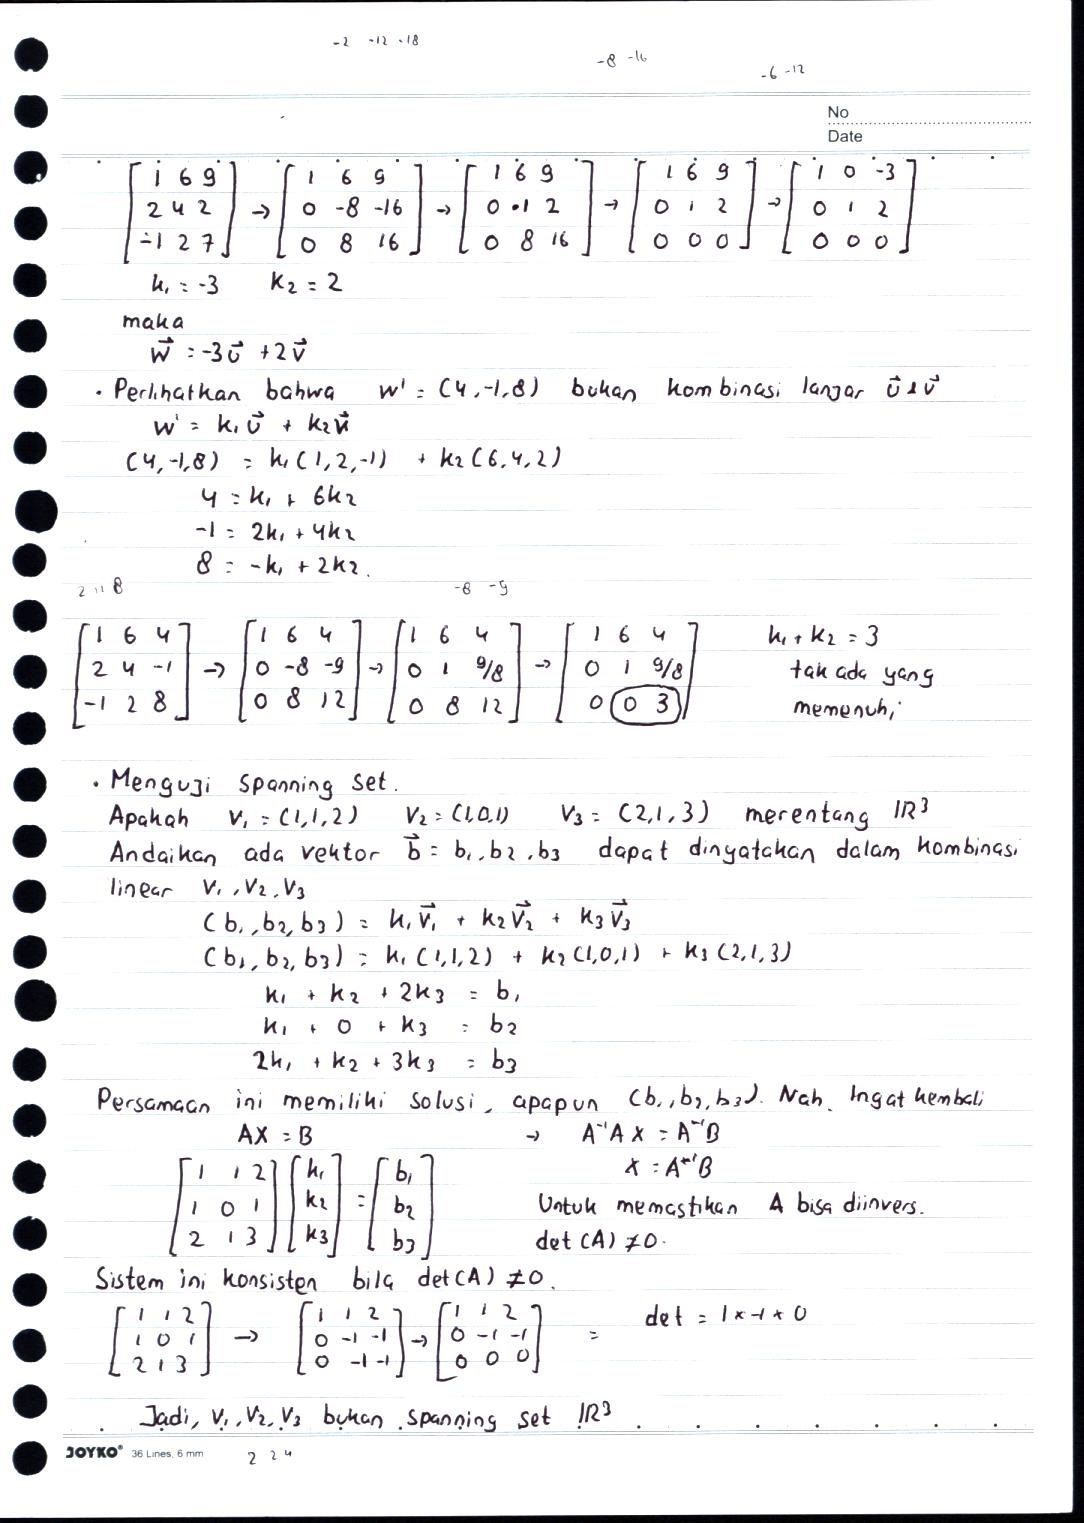 -2 -12 -18
-8 -16
-6 -12
No
Date
[1 6 9; 2 4 2; -1 2 7] → [1 6 9; 0 -8 -16; 0 8 16] → [1 6 9; 0 1 2; 0 8 16] → [1 6 9; 0 1 2; 0 0 0] → [1 0 -3; 0 1 2; 0 0 0]
k₁ = -3 k₂ = 2
maka
w⃗ = -3u⃗ + 2v⃗
• Perlihatkan bahwa w' = (4,-1,8) bukan kombinasi lanjar u⃗ & v⃗
w' = k₁u⃗ + k₂v⃗
(4,-1,8) = k₁(1,2,-1) + k₂(6,4,2)
4 = k₁ + 6k₂
-1 = 2k₁ + 4k₂
8 = -k₁ + 2k₂.
2 11 8
-8 -9
[1 6 4; 2 4 -1; -1 2 8] → [1 6 4; 0 -8 -9; 0 8 12] → [1 6 4; 0 1 9/8; 0 8 12] → [1 6 4; 0 1 9/8; 0 0 3]
k₁ + k₂ = 3
tak ada yang
memenuhi
• Menguji spanning set.
Apakah v₁ = (1,1,2) v₂ = (1,0,1) v₃ = (2,1,3) merentang ℝ³
Andaikan ada vektor b⃗ = b₁,b₂,b₃ dapat dinyatakan dalam kombinasi
linear v₁,v₂,v₃
(b₁,b₂,b₃) = k₁v⃗₁ + k₂v⃗₂ + k₃v⃗₃
(b₁,b₂,b₃) = k₁(1,1,2) + k₂(1,0,1) + k₃(2,1,3)
k₁ + k₂ + 2k₃ = b₁
k₁ + 0 + k₃ = b₂
2k₁ + k₂ + 3k₃ = b₃
Persamaan ini memiliki solusi, apapun (b₁,b₂,b₃). Nah, Ingat kembali
AX = B → A⁻¹A X = A⁻¹B
X = A⁻¹B
[1 1 2; 1 0 1; 2 1 3] [k₁; k₂; k₃] = [b₁; b₂; b₃]
Untuk memastikan A bisa diinvers.
det(A) ≠ 0.
Sistem ini konsisten bila det(A) ≠ 0.
[1 1 2; 1 0 1; 2 1 3] → [1 1 2; 0 -1 -1; 0 -1 -1] → [1 1 2; 0 -1 -1; 0 0 0] = det = 1 x -1 x 0
Jadi, v₁,v₂,v₃ bukan spanning set ℝ³
JOYKO® 36 Lines, 6 mm
2 2 4